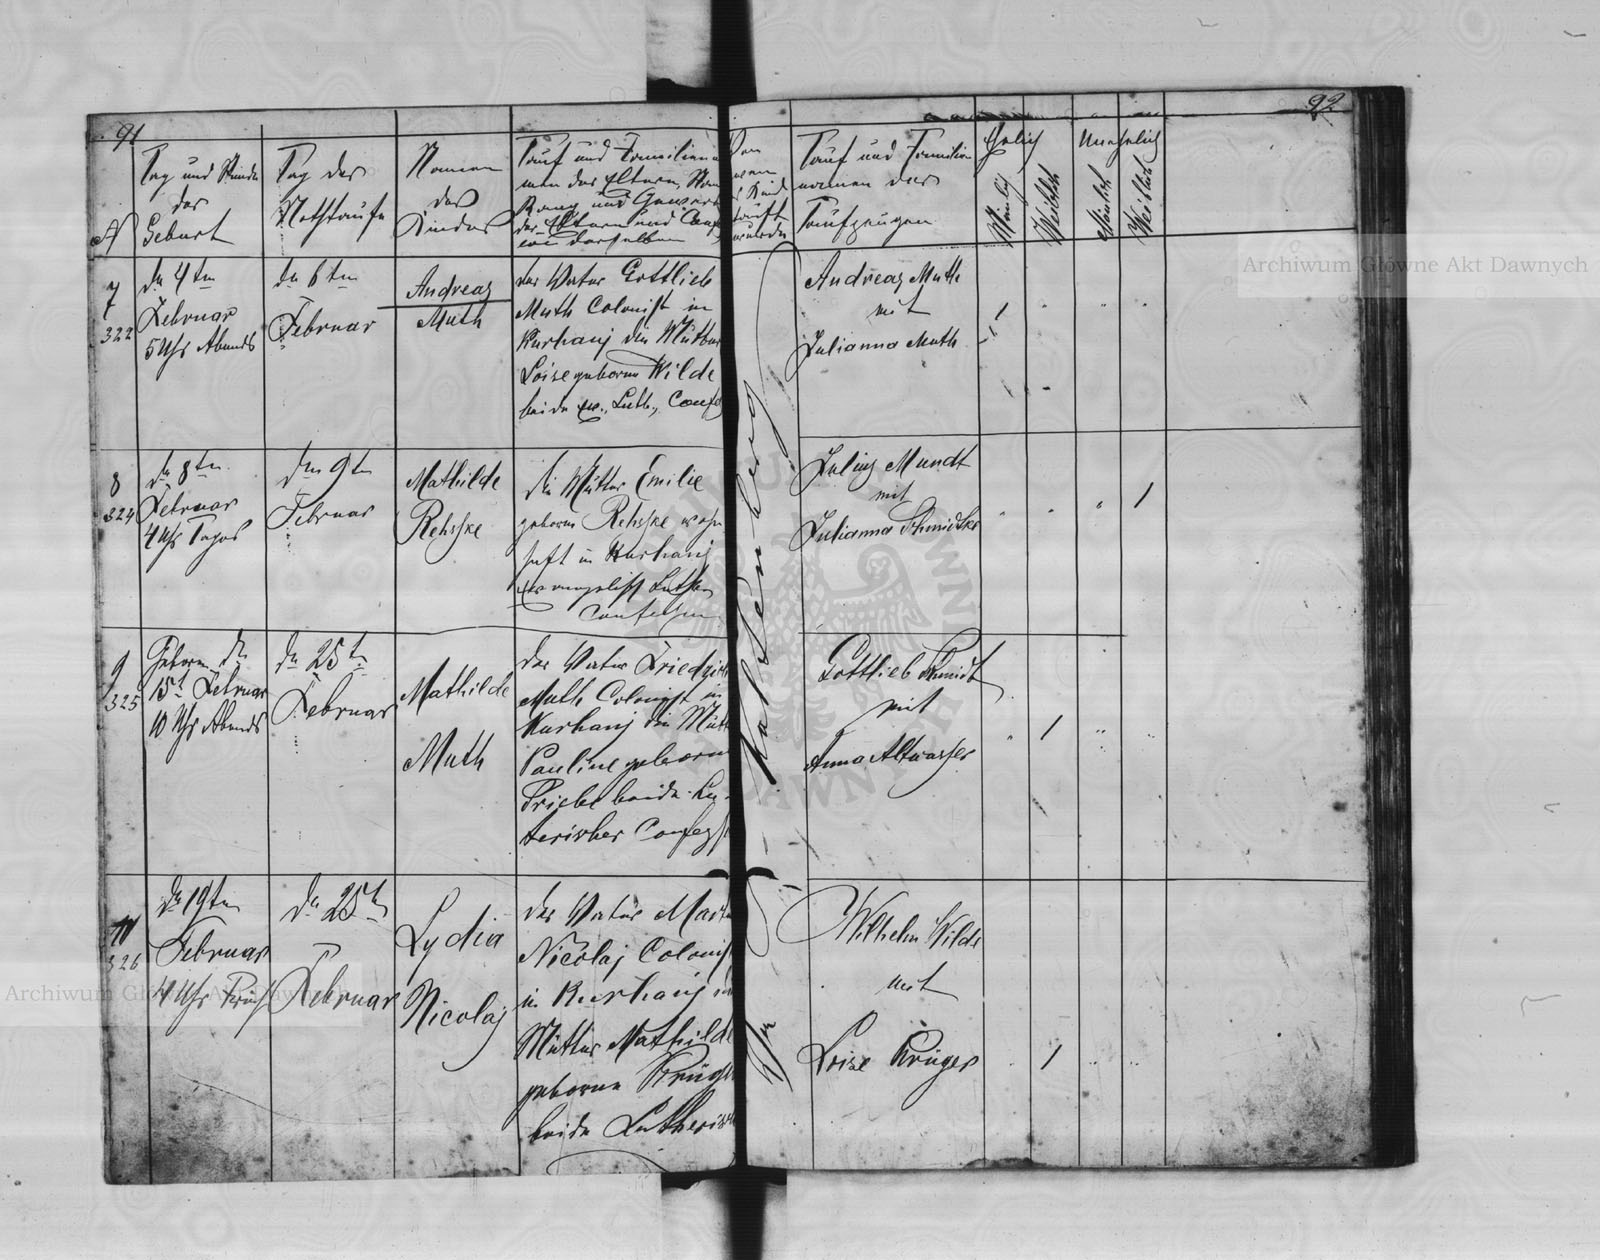 91
92
№
Tag und Stunde
der
Geburt
Tag der
Nothtaufe
Namen
des
Kindes
Tauf und Familienna
men der Eltern, Stan
Rang und Gewerb
der Eltern und Conf
ion derselben
Von
wem
s Kind
tauft
wurde
Tauf und Familien
namen der
Taufzeugen
Ehelich
Unehelich
Mänlich
Weiblich
Mänlich
Weiblich
7
322
den 4ten
Februar
5 Uhr Abends
den 6ten
Februar
Andreas
Muth
der Vater Gottlieb
Muth Colonist in
Kurhanj die Mutter
Loise geborne Wilde
beide ev. Luth. Conf
Andreas Muth
mit
Julianna Muth
8
324
den 8ten
Februar
4 Uhr Tages
den 9ten
Februar
Mathilde
Rehske
die Mutter Emilie
geborne Rehske wohn
haft in Kurhanj
Evangelisch Luther
Confession
Julius Mundt
mit
Julianna Schmidtke
9
325
Geboren den
15t Februar
10 Uhr Abends
den 25ten
Februar
Mathilde
Muth
der Vater Friedrich
Muth Colonist in
Kurhanj die Mutt
Pauline geborne
Priebe beide Lu-
terischer Confess
Gottlieb Schmidt
mit
Anna Altwasser
10
326
den 19ten
Februar
4 Uhr Früh
den 25ten
Februar
Lydia
Nicolaj
der Vater Mart
Nicolaj Colonist
in Kurhanj die
Mutter Mathilde
geborne Krüger
beide Lutherisch
Wilhelm Wilde
mit
Loise Krüger
Archiwum Główne Akt Dawnych
Archiwum Główne Akt Dawnych